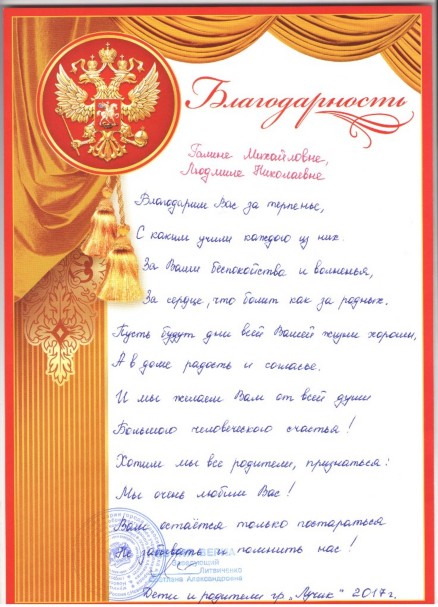 Благодарность
Галине Михайловне,
Людмиле Николаевне
Благодарим Вас за терпенье,
С каким учили каждого из них.
За Ваши беспокойства и волненья,
За сердце, что болит как за родных.
Пусть будут дни всей Вашей жизни хороши,
А в доме радость и согласье.
И мы желаем Вам от всей души
Большого человеческого счастья!
Хотим мы все родители, признаться:
Мы очень любим Вас!
Вам остаётся только постараться
Не забывать и помнить нас!
Заведующий
Литвиченко
Светлана Александровна
Дети и родители гр „Лучик“ 2017г.